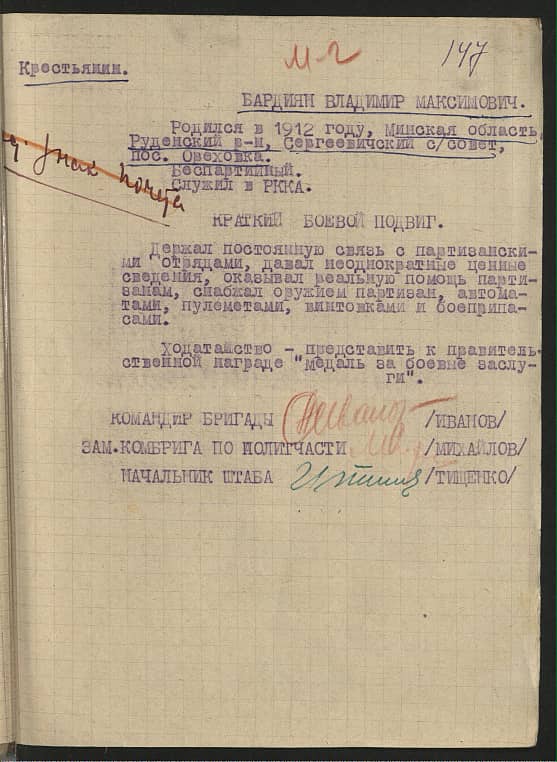 М-2
147
Крестьянин.
БАРДИЯН ВЛАДИМИР МАКСИМОВИЧ.
Родился в 1912 году, Минская область,
Руденский в-н, Сергеевичский с/совет,
пос. Овеховка.
Беспартийный.
Служил в РККА.
знак почета
КРАТКИЙ БОЕВОЙ ПОДВИГ.
Держал постоянную связь с партизански-
ми отрядами, давал неоднократные ценные
сведения, оказывал реальную помощь парти-
занам, снабжал оружием партизан, автома-
тами, пулеметами, винтовками и боеприпа-
сами.
Ходатайство - представить к правитель-
ственной награде "медаль за боевые заслу-
ги".
КОМАНДИР БРИГАДЫ /ИВАНОВ/
ЗАМ.КОМБРИГА ПО ПОЛИТЧАСТИ /МИХАЙЛОВ/
НАЧАЛЬНИК ШТАБА /ТИЩЕНКО/